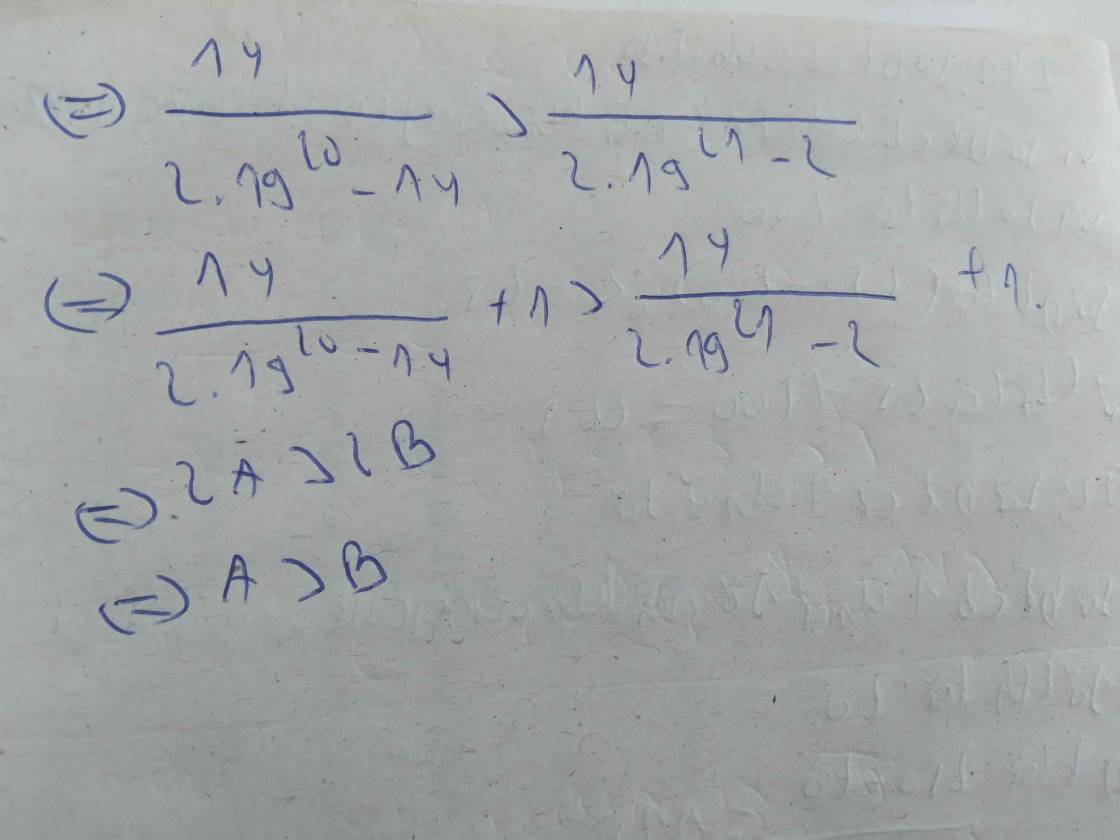 (=) 14/(2.19^20 - 14) > 14/(2.19^21 - 2)
(=) 14/(2.19^20 - 14) + 1 > 14/(2.19^21 - 2) + 1.
(=) 2A > 2B
(=) A > B